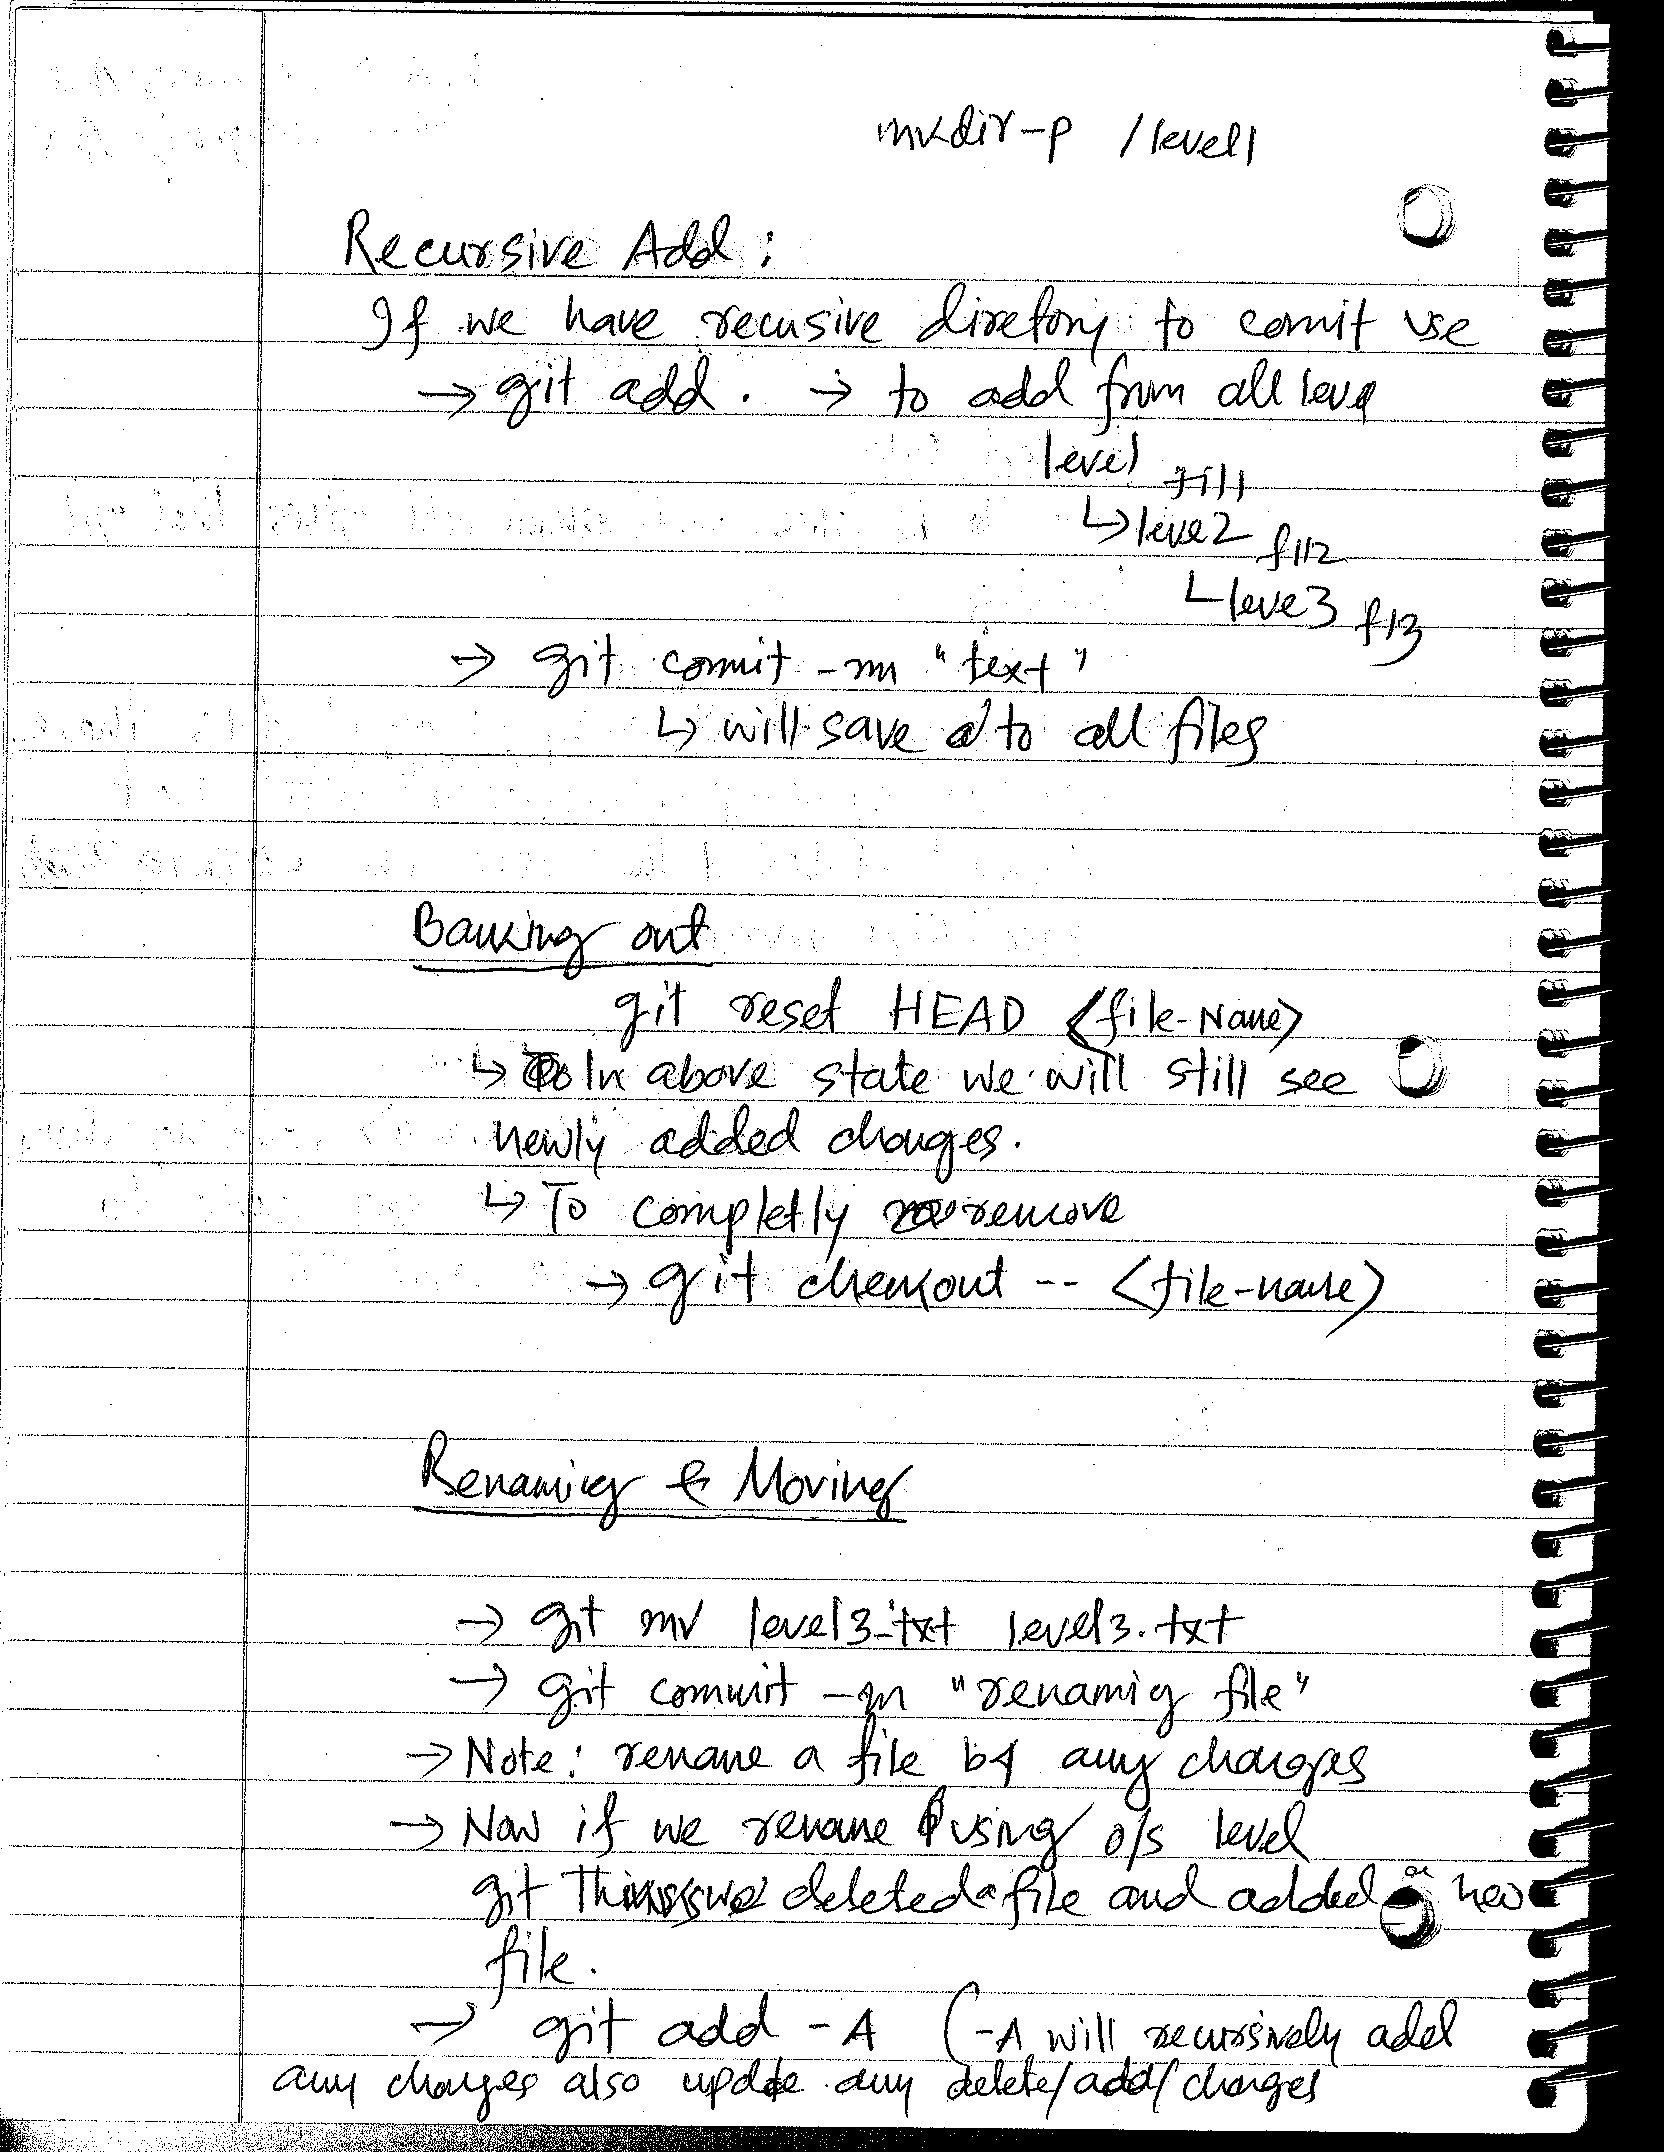 mkdir -p /level1
Recursive Add :
If we have recusive diretory to comit use
→ git add . → to add from all level
level1 fil1
↳ leve2 fil2
↳ leve3 fil3
→ git commit -m "text"
↳ will save a to all files
Backing out
git reset HEAD <file-Name>
↳ In above state we will still see
newly added changes.
↳ To completly remove
→ git checkout -- <file-name>
Renaming & Moving
→ git mv level3-txt level3.txt
→ git commit -m "renamig file"
→ Note: rename a file b4 any changes
→ Now if we rename using o/s level
git Thinks we deleted a file and added a new
file.
→ git add -A (-A will recursively add
any changes also update any delete/add/changes